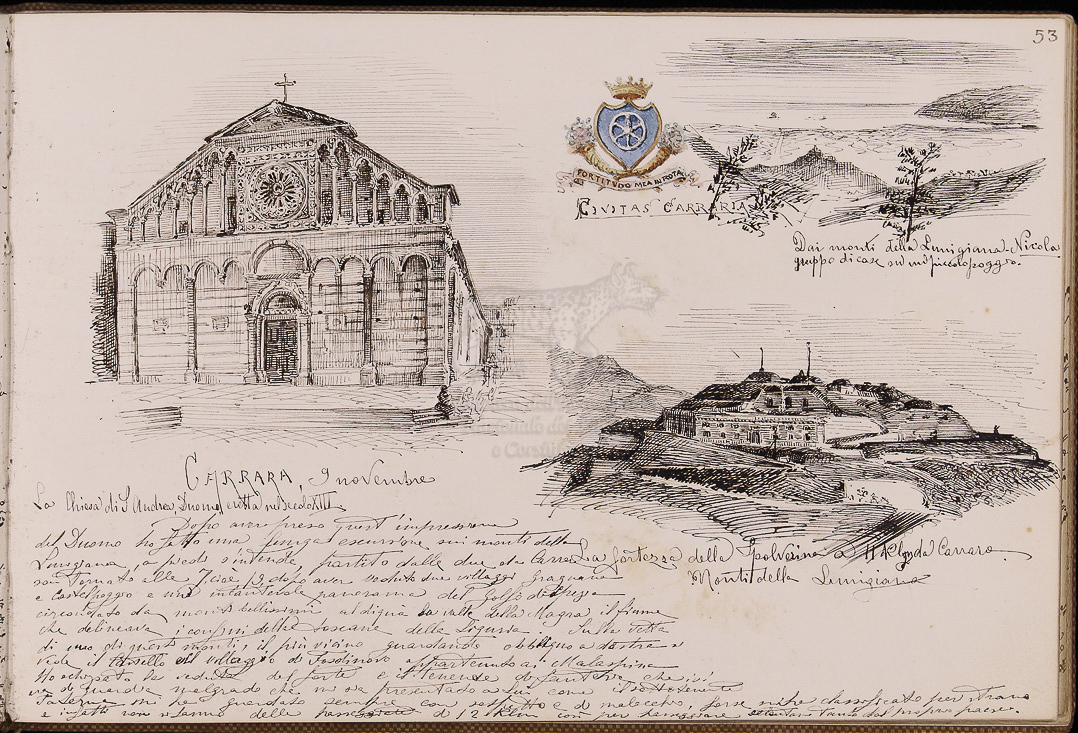 53
FORTITVDO MEA IN ROTA
CIVITAS CARRARIA
Dai monti della Lunigiana - Nicola
gruppo di case su un piccolo poggio.
CARRARA, 9 novembre
La Chiesa di S Andrea Duomo eretta nel secolo XIII
Dopo aver preso quest'impressione
del Duomo ho fatto una lunga escursione sui monti della
Lunigiana, a piedi s'intende, partito dalle due da Carrara
son tornato alle 7 cioè dopo aver veduto due villaggi Gragnana
e Castelpoggio e una panorama del golfo di Spezia
circondato da monti bellissimi al di qua la valle della Magra il fiume
che delineava i confini della Toscana della Liguria. Sulla vetta
di uno di questi monti, il più vicino guardando obbliquo a destra si
vede il castello e il villaggio di Fosdinovo appartenuto ai Malaspina
Ho la veduta del forte e il tenente di fanteria che ivi
di guardia malgrado che mi sia presentato a lui come
mi ha guardato sempre con sospetto e di malocchio, forse
e infatti non si fanno delle di 12 Kilm così per
La fortezza della Spolverina a 11 Kilom da Carrara
Monti della Lunigiana